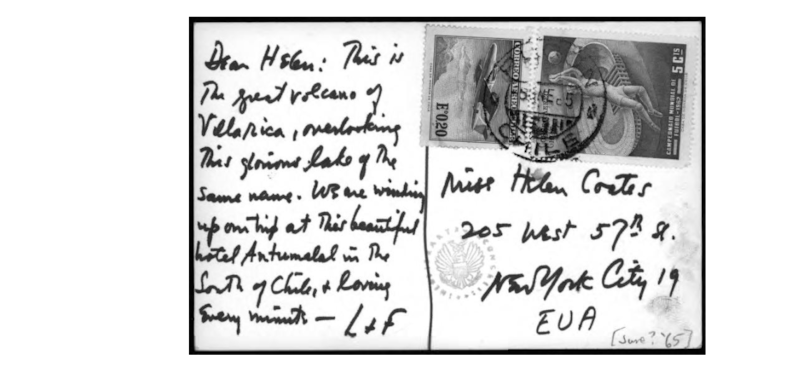 Dear Helen: This is
the great volcano of
Villarica, overlooking
this glorious lake of the
same name. We are winding
up our trip at this beautiful
hotel Antumalal in the
South of Chile, & loving
every minute — L & F
CORREO AEREO
E°0,20
CHILE
5 CTS
CAMPEONATO MUNDIAL DE
FUTBOL
Miss Helen Coates
205 West 57th St.
New York City 19
EUA
[June? '65]